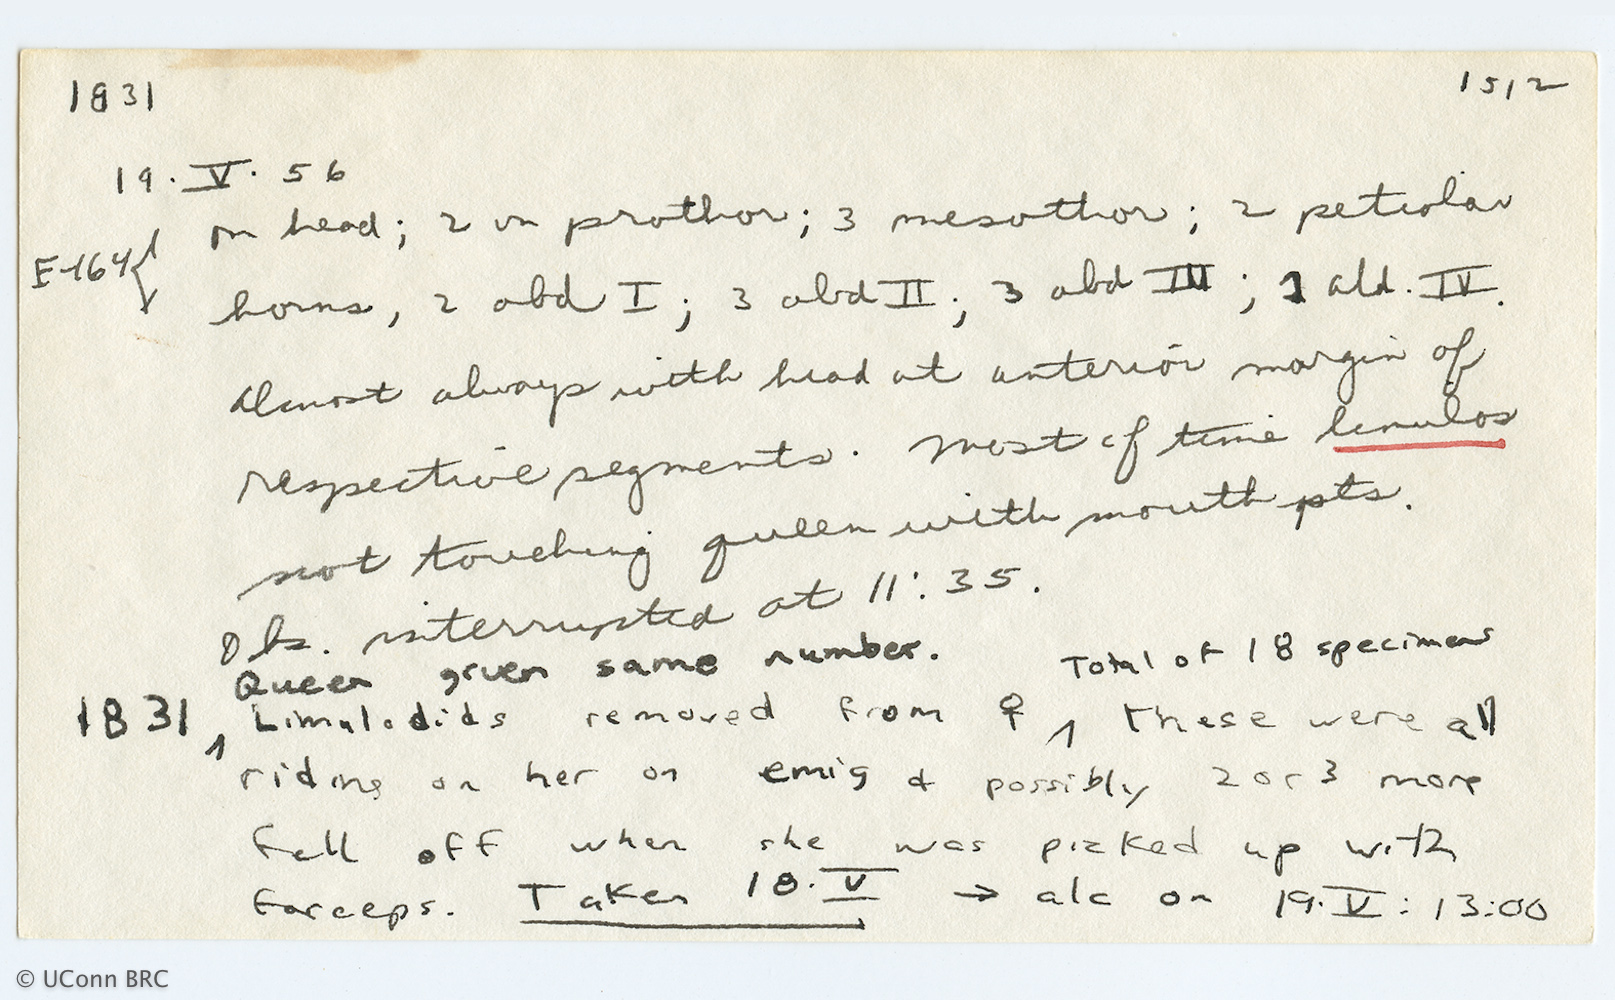 1831
1512
19.V.56
on head; 2 on prothor; 3 mesothor; 2 petiolar
E-164{
horns, 2 abd I; 3 abd II; 3 abd III; 1 abd. IV.
Almost always with head at anterior margin of
respective segments. Most of time limulos
not touching queen with mouth pts.
Obs. interrupted at 11:35.
Queen given same number. Total of 18 specimens
1831, Limulodids removed from ♀, These were all
riding on her on emig & possibly 2 or 3 more
fell off when she was picked up with
forceps. Taken 18.V → alc on 19.V: 13:00
© UConn BRC